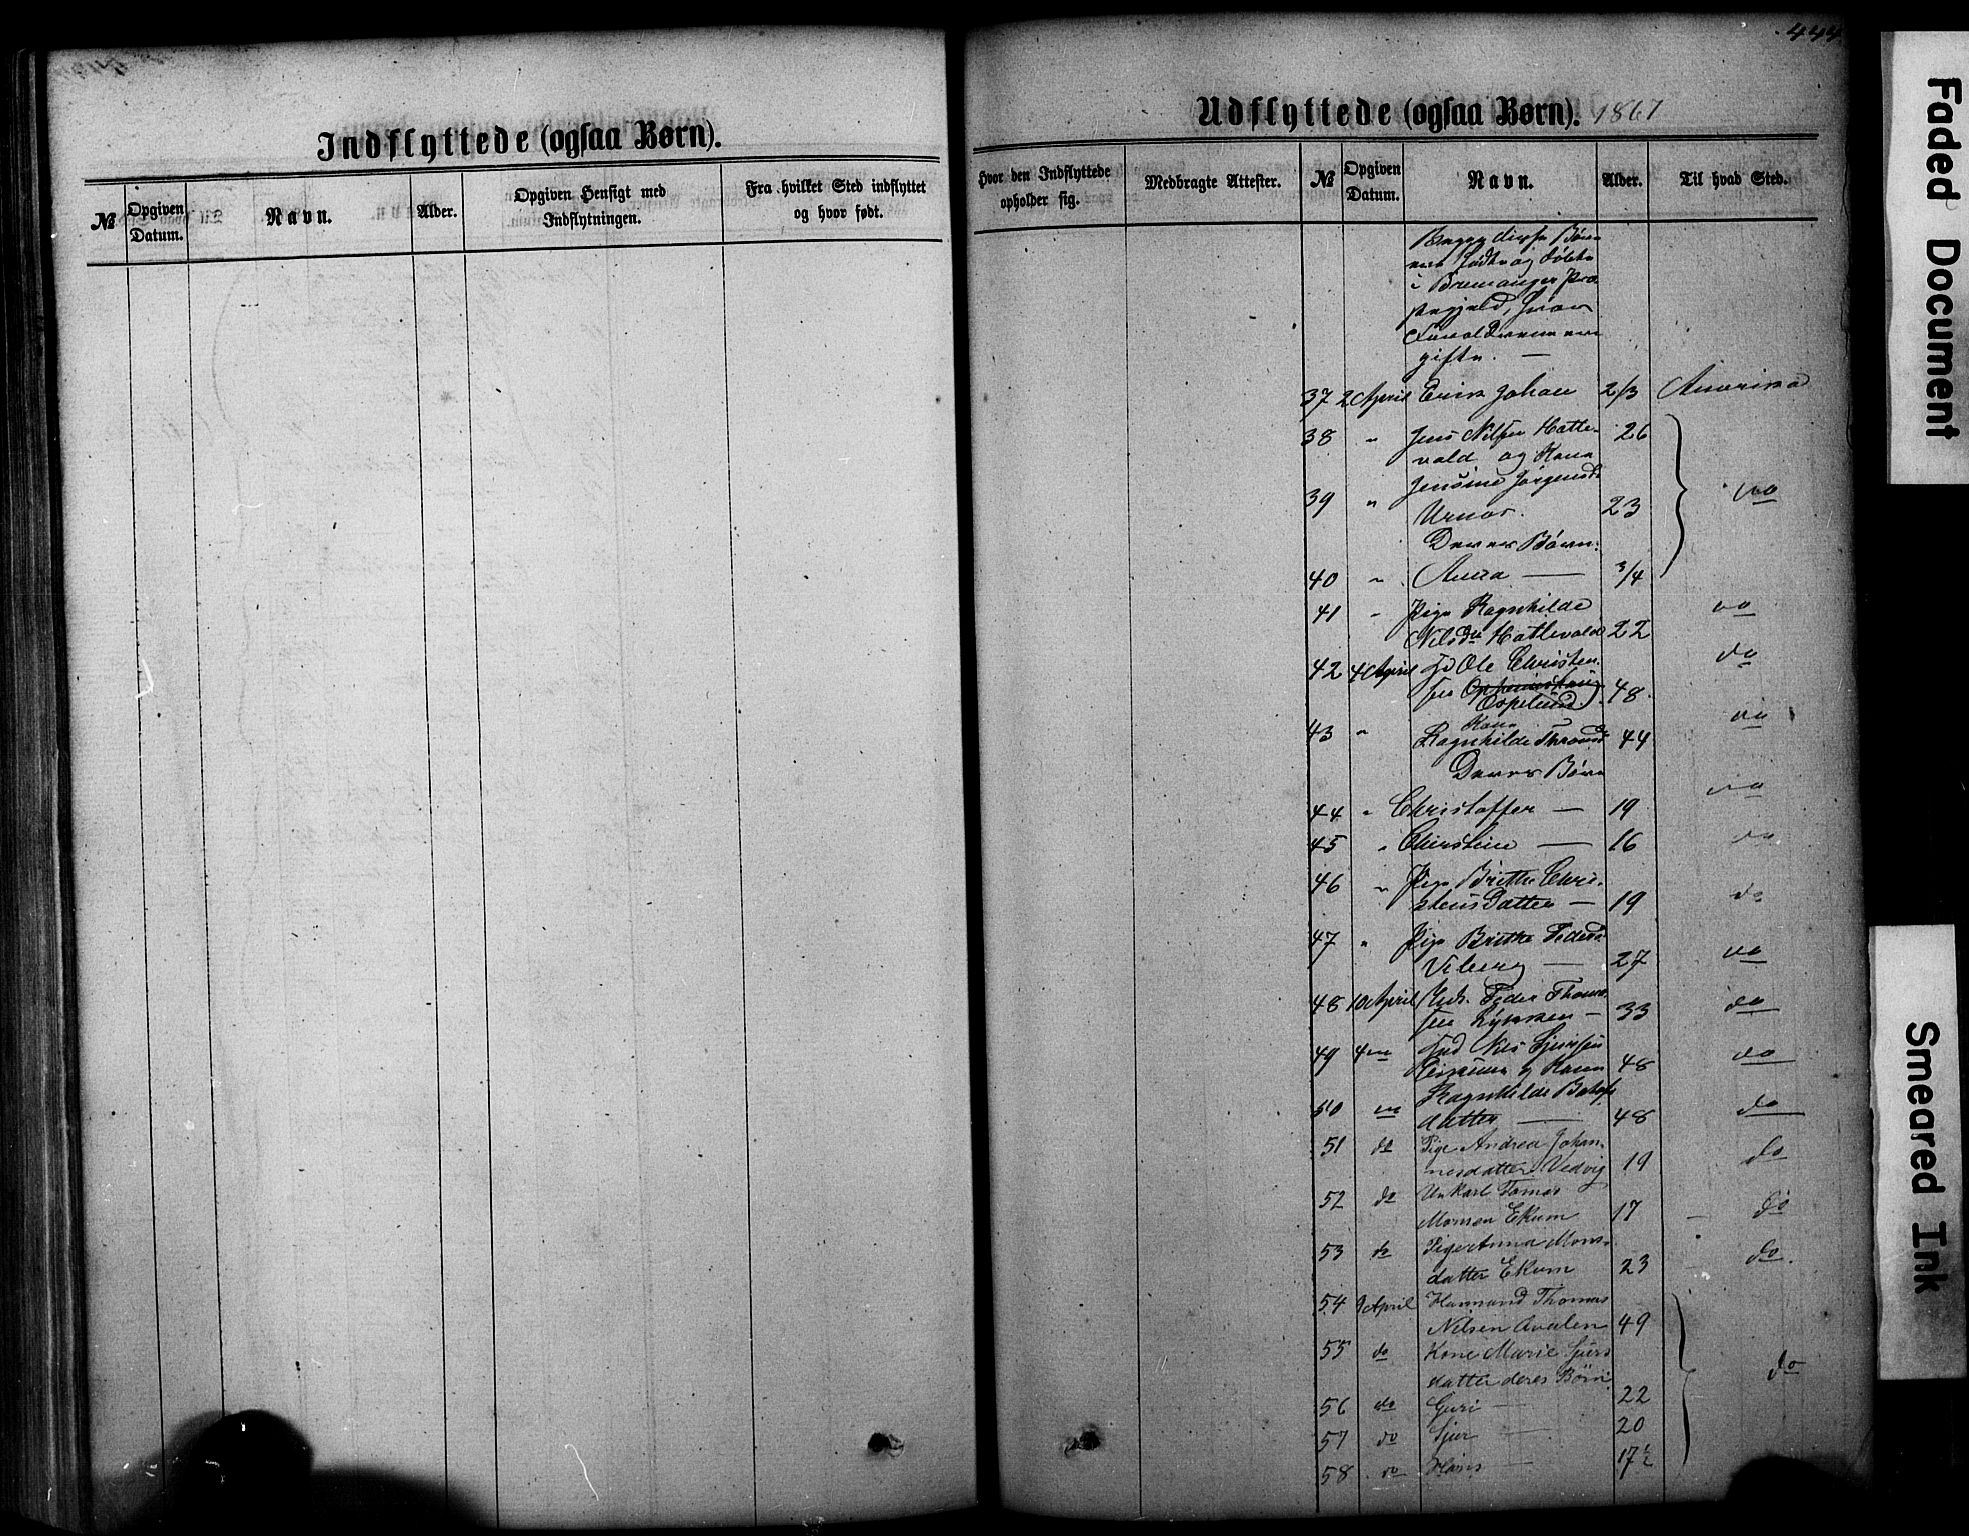 Indflyttede (ogsaa Børn).
№
Opgiven Datum.
Navn.
Alder.
Opgiven Hensigt med Indflytningen.
Fra hvilket Sted indflyttet og hvor født.
444
Udflyttede (ogsaa Børn). 1867
Hvor den Indflyttede opholder sig.
Medbragte Attester.
№
Opgiven Datum.
Navn.
Alder.
Til hvad Sted.
Begge disse Børn
ere fødte og døbte
i Bremanger Præ
stegjeld, hvor
Forældrene ere
gifte. —
37 2 April Erik Johan 2/3 Amerika
38 " Jens Nilsen Hatle- 26
vold og Kone
39 " Jensine Jørgensd
Urnæs. 23 do
Deres Børn:
40 " Anna — 3/4
41 " Pige Ragnhilde do
Nilsdtr Hatlevold 22
42 4 April Ole Christen- do
sen Espelund 48.
Kone
43 " Ragnhilde Thronds 44 do
Deres Børn
44 " Christoffer — 19 do
45 " Christine — 16 do
46 " Pige Brithe Chri-
stensdatter — 19 do
47 " Pige Brithe Peders
Veberg — 27 do
48 10 April Enk. Peder Thom
sen Lykken — 33 do
49 4 do Nils Sjursen
og Kone 48 do
50 do Ragnhilde
datter — 48 do
51 do Pige Andrea Johan-
nesdatter Vedvig 19 do
52 do Unkarl Tomas
Monsen Ekum 17 — do
53 do Pige Anna Mons-
datter Ekum 23 — do.
54 9 April Husmand Thomas
Nilsen 49
55 do Kone Marie Sjurs
datter deres Børn do
56 do Guri — 22
57 do Sjur — 20
58 do Hans — 17½
Faded Document
Smeared Ink